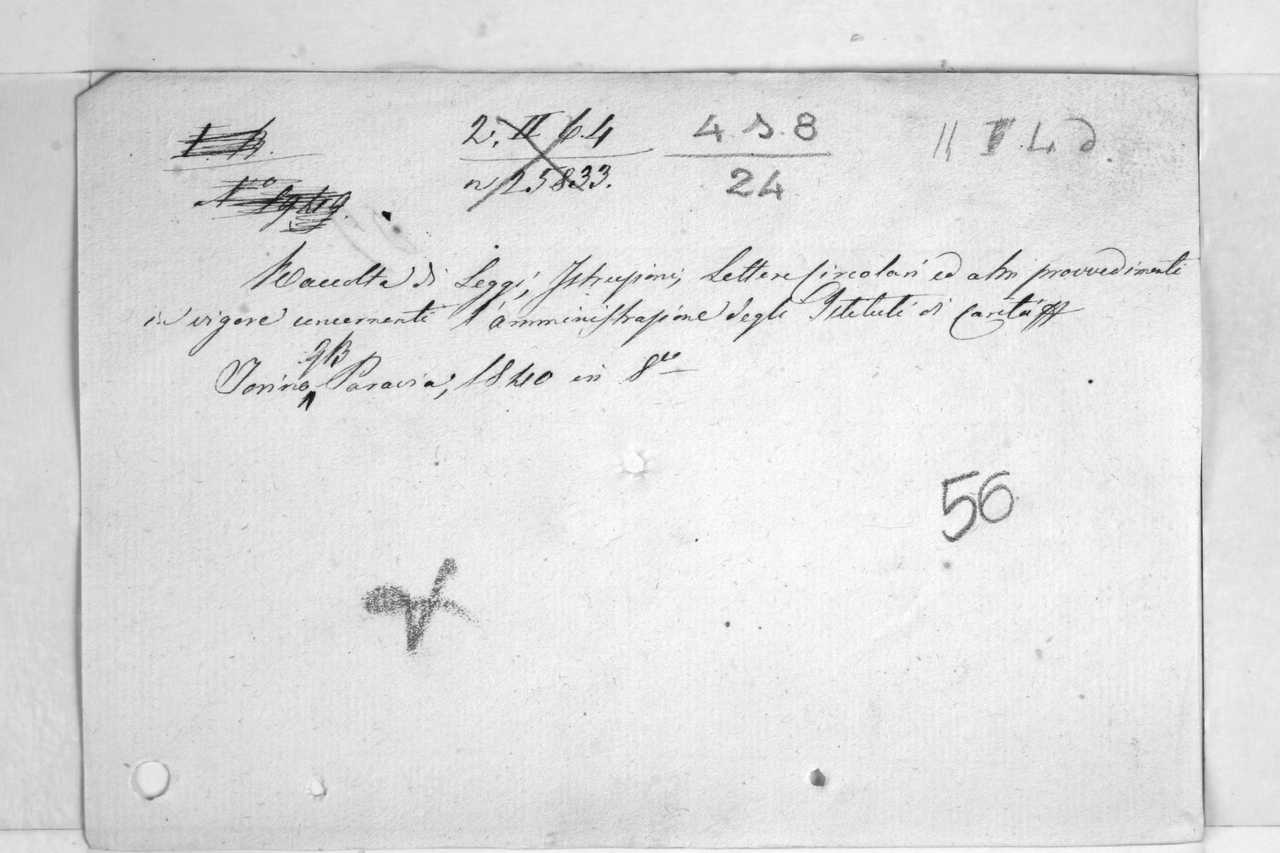 2. II 64 4. S. 8
n 25833. 24
Raccolta di Leggi, Istruzioni, Lettere Circolari ed altri provvedimenti
in vigore concernenti l'amministrazione degli Istituti di Carità
GB
Torino, Paravia, 1840 in 8vo
56